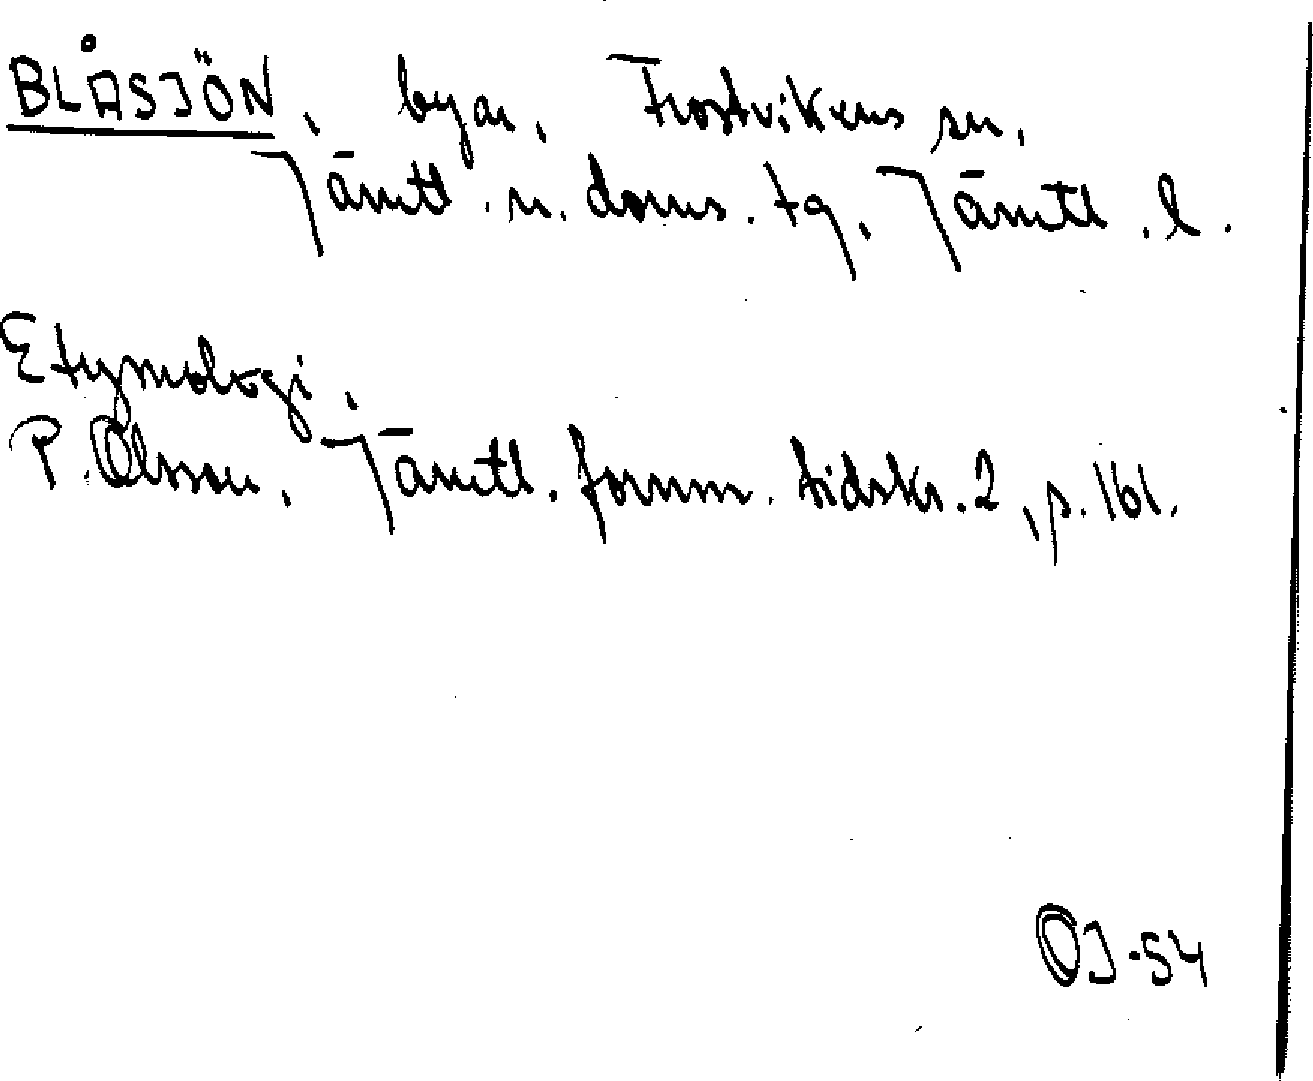 BLÅSJÖN, byar, Frostvikens sn,
Jämtl. n. doms. tg, Jämtl. l.
Etymologi.
P. Olsson, Jämtl. fornm. tidskr. 2, s. 161.
OJ-54